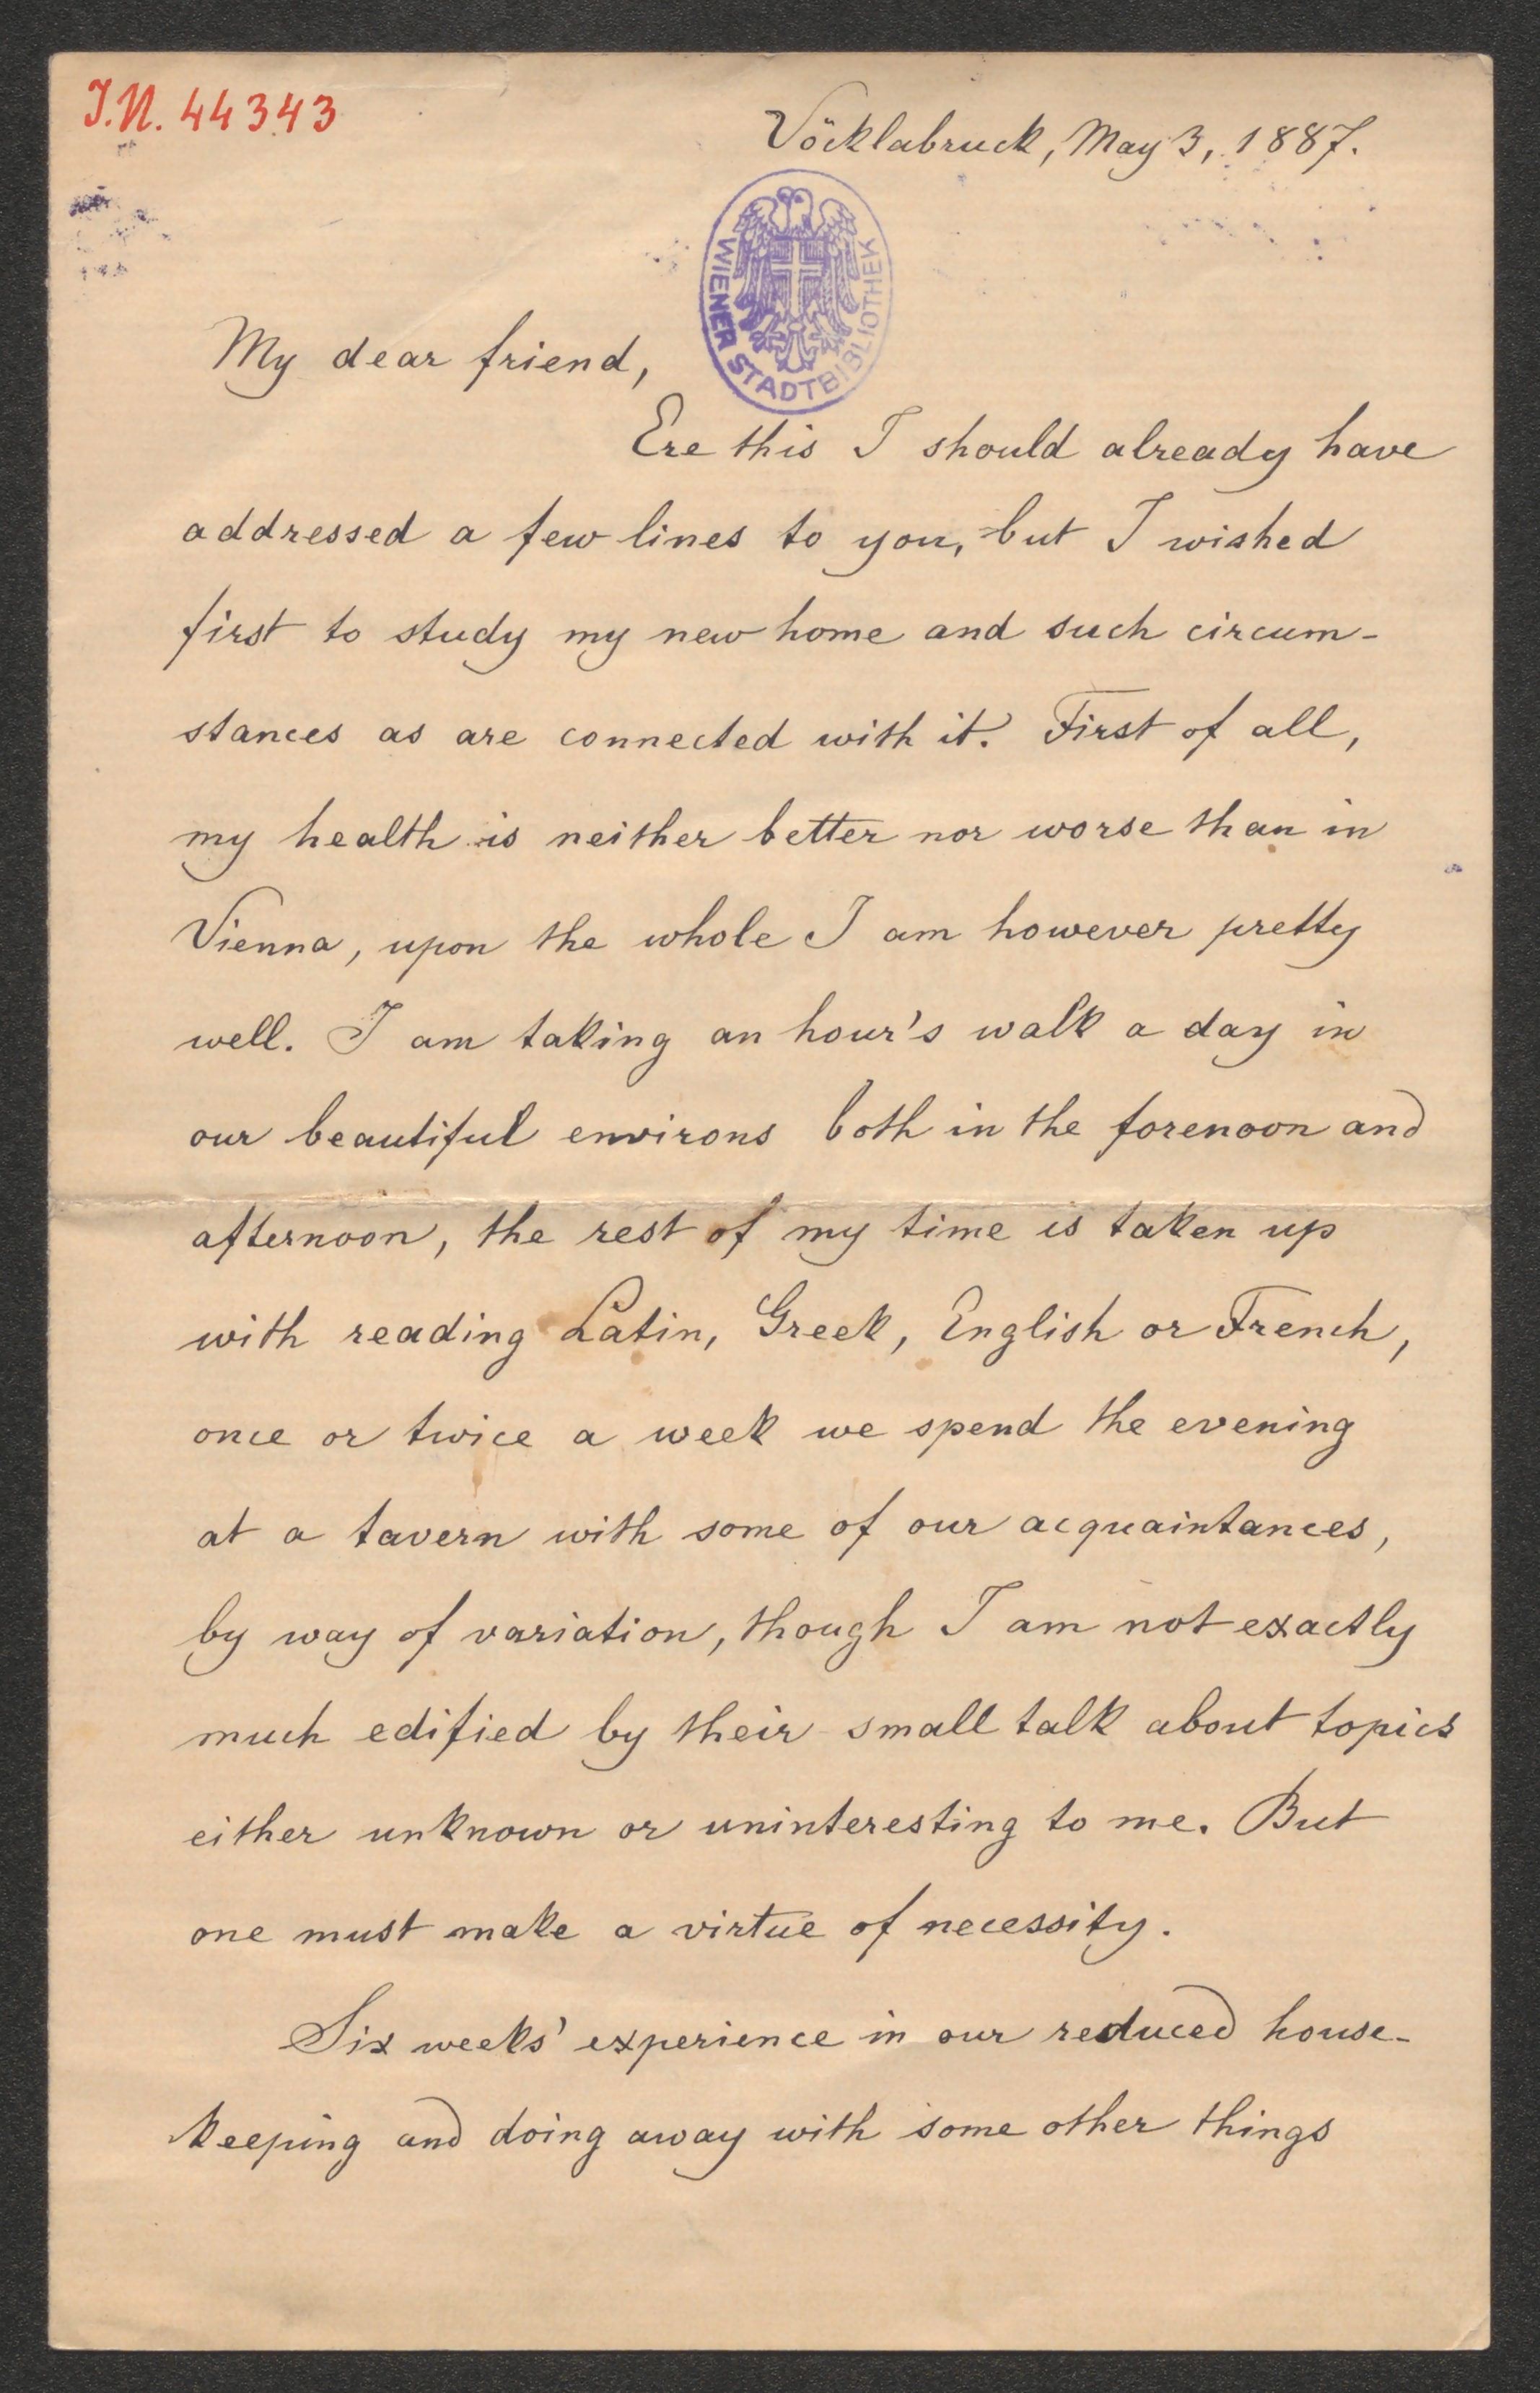 J.N. 44343
Vöcklabruck, May 3, 1887.
WIENER STADTBIBLIOTHEK
My dear friend,
Ere this I should already have
addressed a few lines to you, but I wished
first to study my new home and such circum-
stances as are connected with it. First of all,
my health is neither better nor worse than in
Vienna, upon the whole I am however pretty
well. I am taking an hour's walk a day in
our beautiful environs both in the forenoon and
afternoon, the rest of my time is taken up
with reading Latin, Greek, English or French,
once or twice a week we spend the evening
at a tavern with some of our acquaintances,
by way of variation, though I am not exactly
much edified by their small talk about topics
either unknown or uninteresting to me. But
one must make a virtue of necessity.
Six weeks' experience in our reduced house-
keeping and doing away with some other things